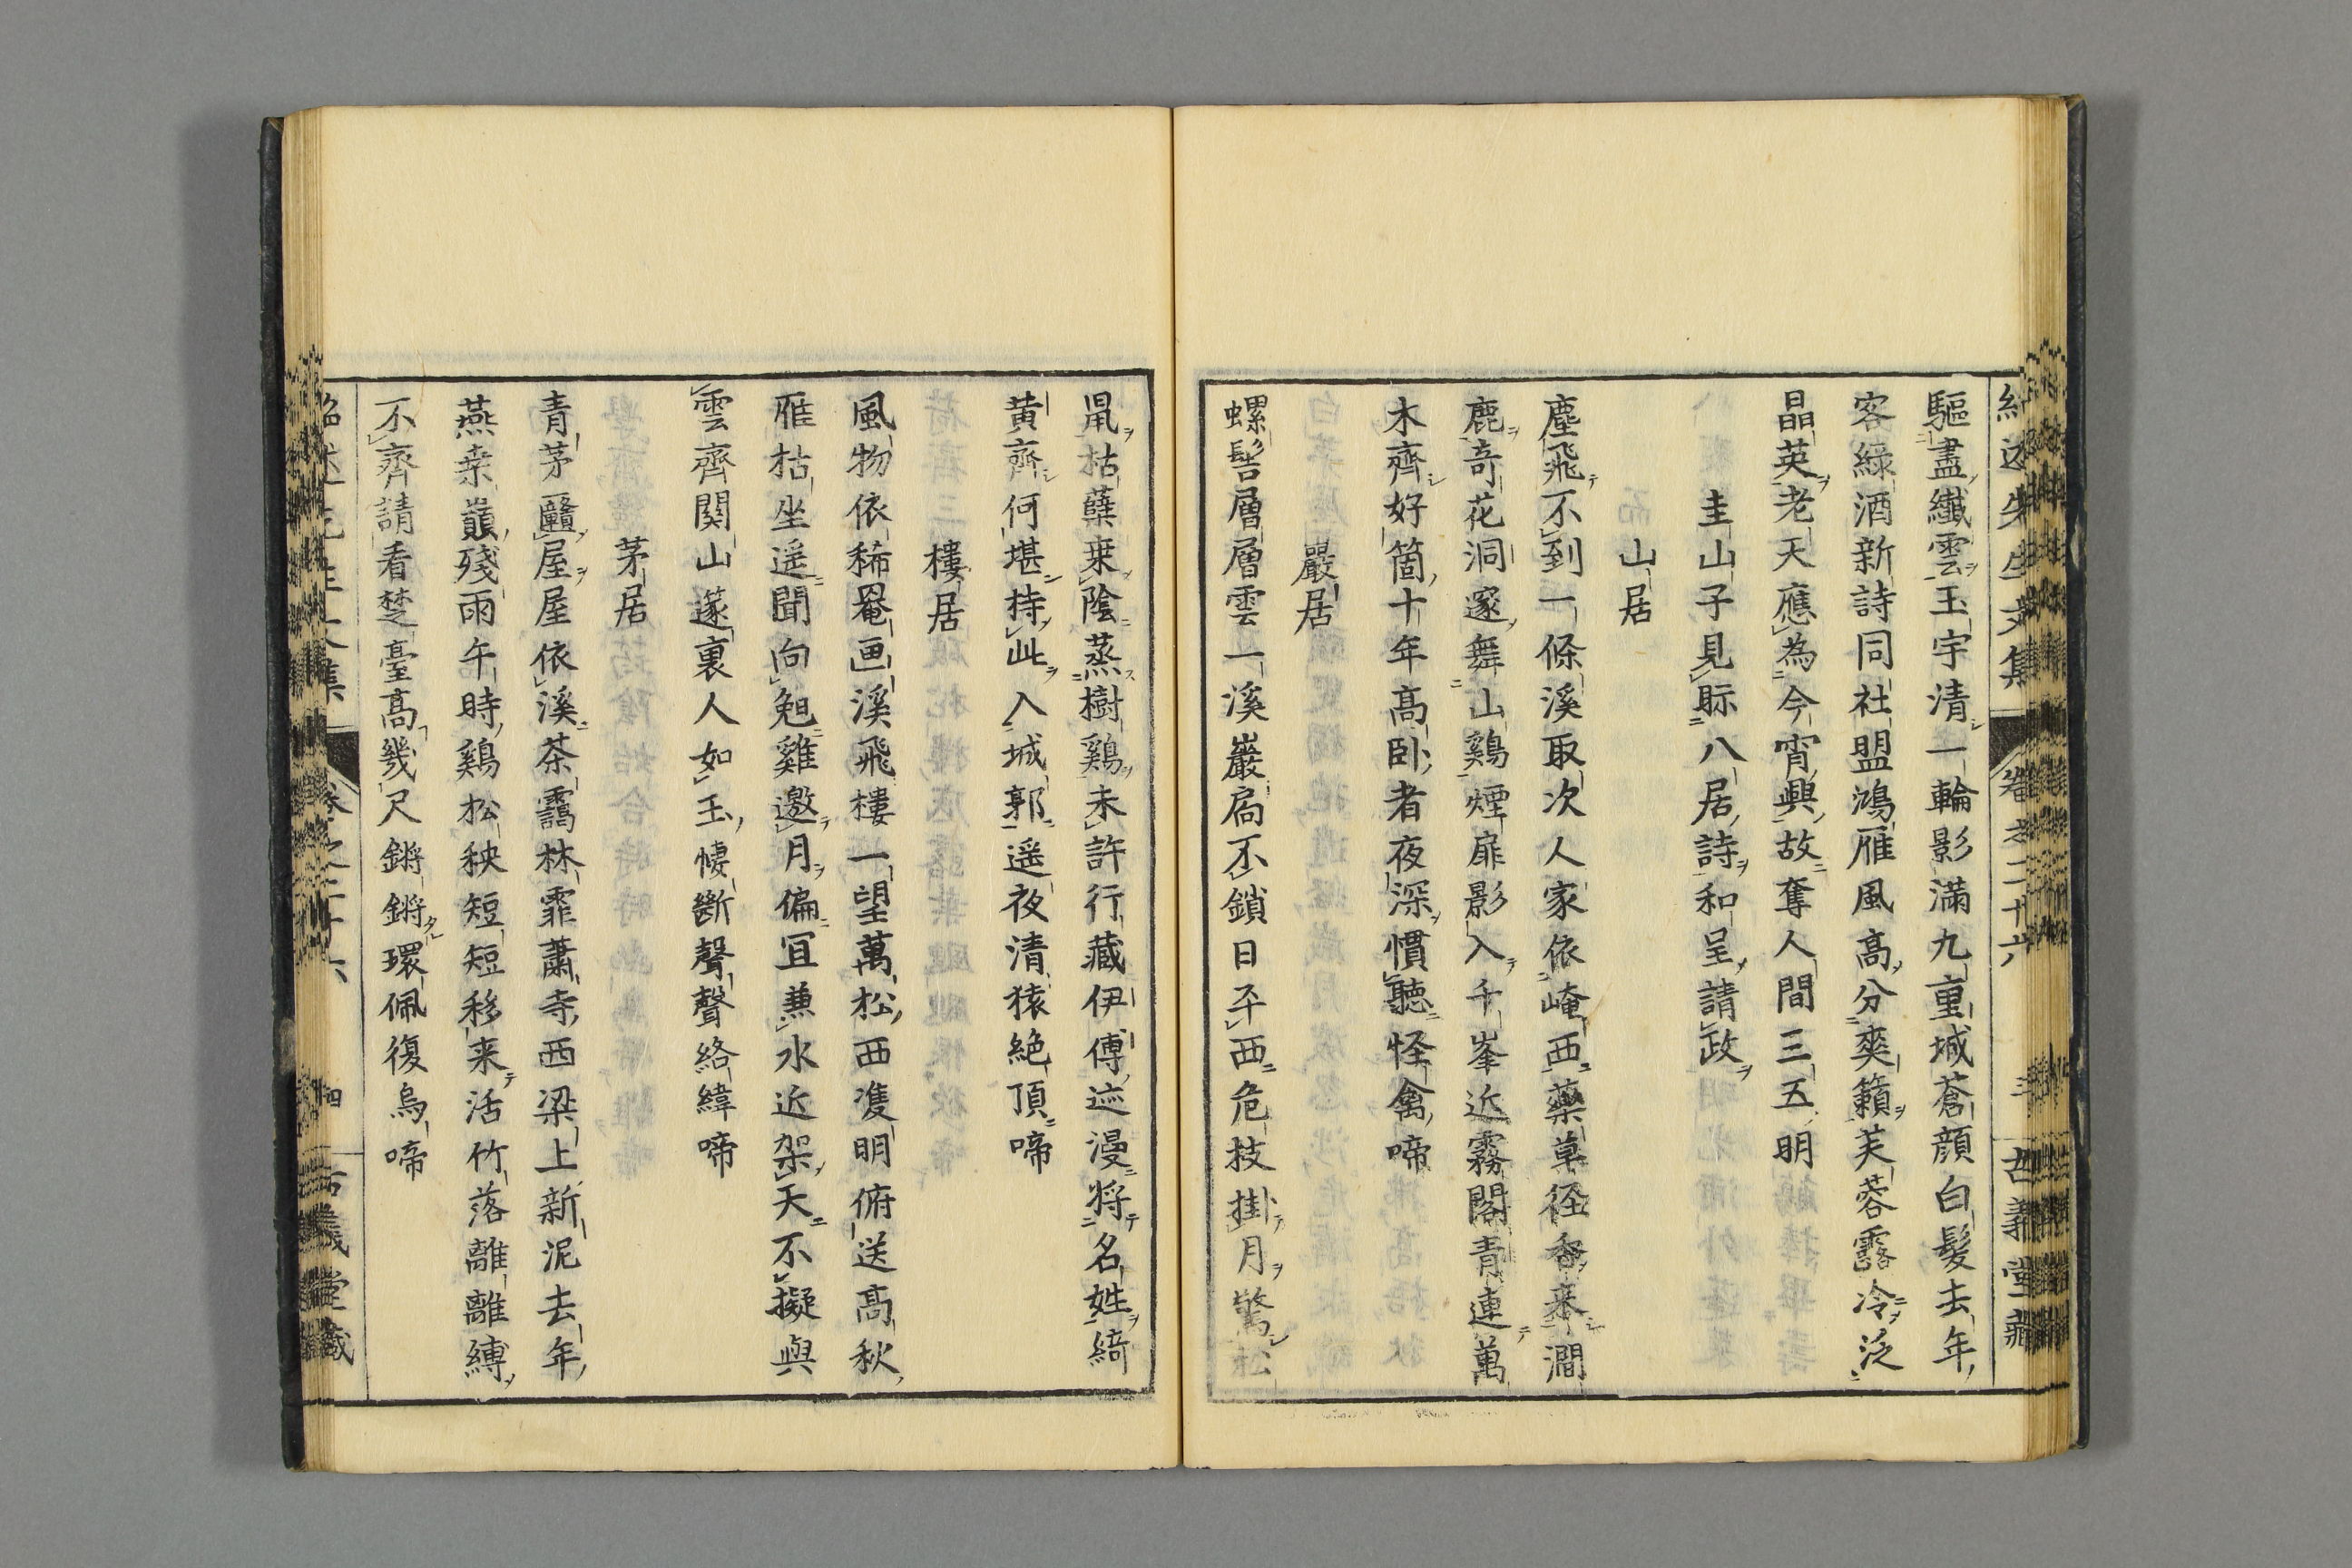 驅盡纎雲玉宇清一輪影滿九重城蒼顔白髪去年
客綠酒新詩同社盟鴻雁風高分爽籟芙蓉露冷泛
晶英老天應為今宵興故奪人間三五明
圭山子見眎八居詩和呈請政
山居
塵飛不到一條溪取次人家依崦西藥草径香来澗
鹿奇花洞邃舞山鷄煙扉影入千峯近霧閣青連萬
木齊好箇十年高卧者夜深慣聽怪禽啼
巖居
螺髻層層雲一溪巖扃不鎖日平西危枝掛月驚松
鼠枯蘖乗陰蒸樹鷄未許行藏伊傅迹漫将名姓綺
黄齊何堪持此入城郭遥夜清猿絶頂啼
樓居
風物依稀罨画溪飛樓一望萬松西淒明俯送高秋
雁枯坐遥聞向兔雞邀月偏宜兼水近架天不擬與
雲齊関山邃裏人如玉悽斷聲聲絡緯啼
茅居
青茅屋屋依溪茶靄林霏蕭寺西梁上新泥去年
燕桒巔殘雨午時鷄松秧短短移来活竹落離離縛
不齊請看楚臺高幾尺鏘鏘環佩復烏啼
紹述先生文集
卷之二十六
三
古義堂藏
卷之二十六
四
古義堂藏